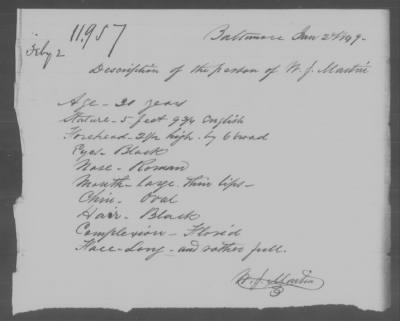 11.957
Feby 2
Baltimore Jan 29/49-
Description of the person of W. J. Martin
Age - 20 years
Stature - 5 feet 9 3/4 English
Forehead - 2 1/2 high. by 6 broad
Eyes - Black
Nose - Roman
Mouth - large. thin lips -
Chin - Oval
Hair - Black
Complexion - Florid
Face - Long - and rather full.
W. J. Martin